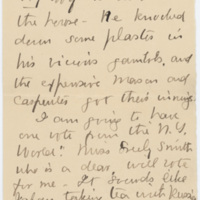 the house - He knocked
down some plaster in
his vicious gambols, and
the expensive mason and
carpenter got their innings.
I am going to have
one vote from the N.Y.
World! Miss Emily Smith
who is a dear will vote
for me - It sounds like
taking tea with